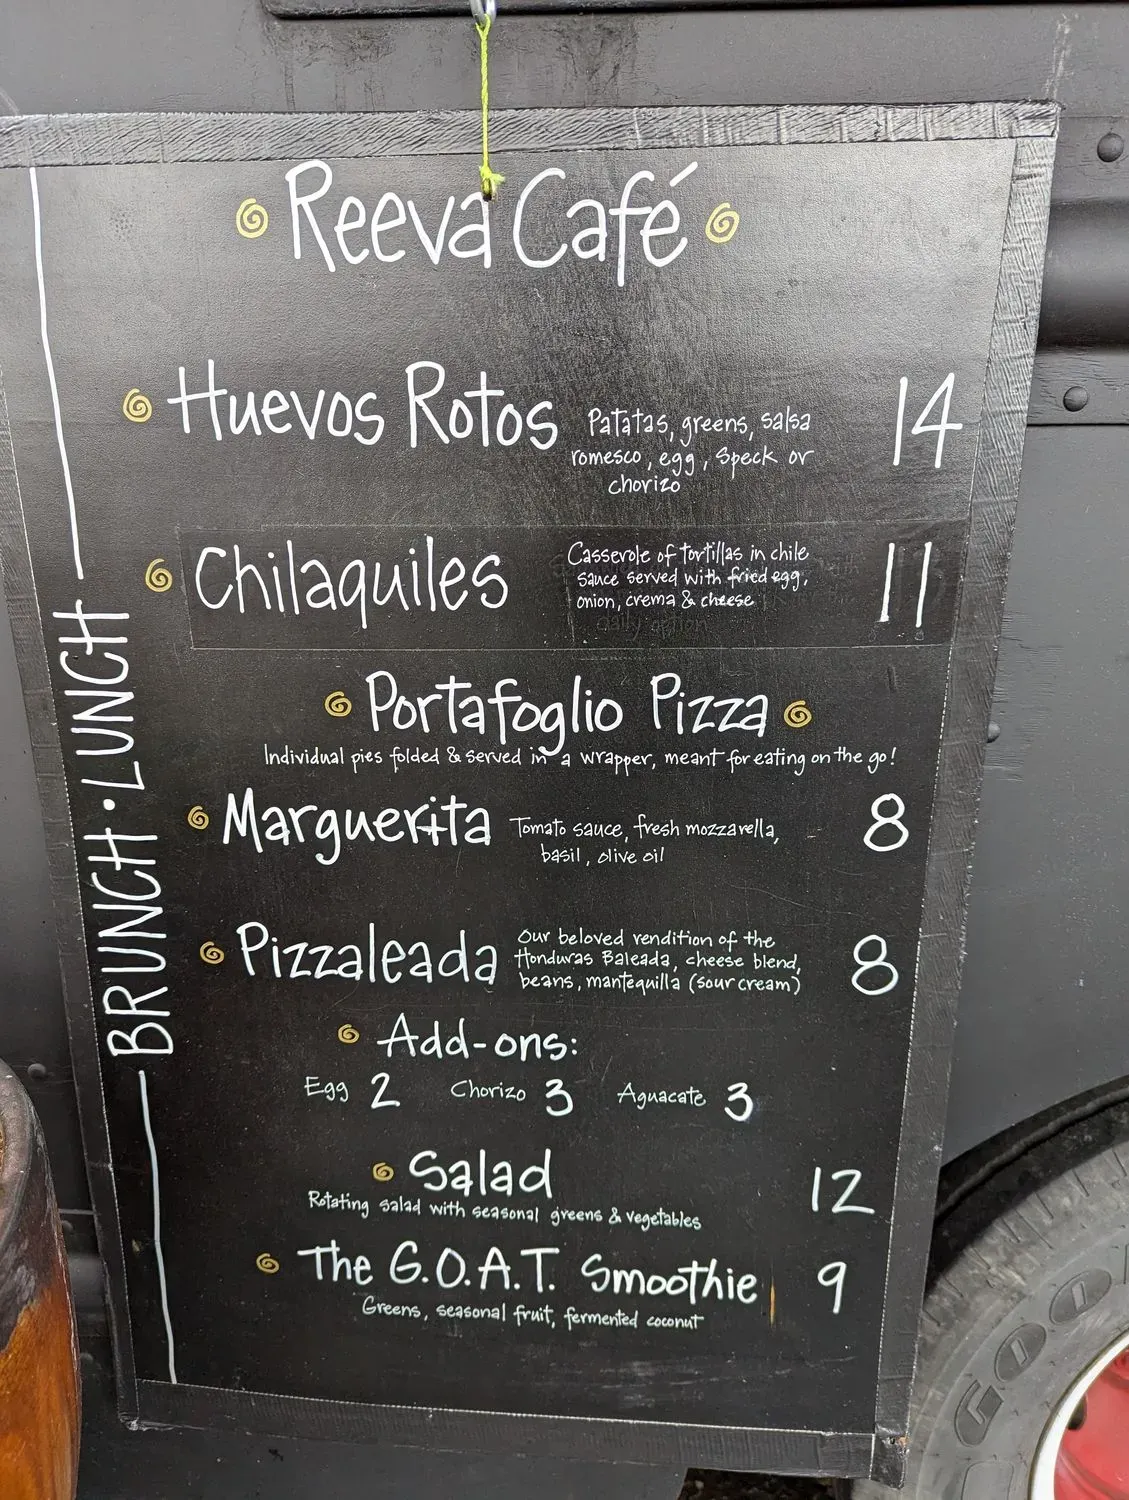 Reeva Café
Huevos Rotos
Patatas, greens, salsa
romesco, egg, Speck or
chorizo
14
Chilaquiles
Casserole of tortillas in chile
sauce served with fried egg,
onion, crema & cheese
daily option
11
Portafoglio Pizza
Individual pies folded & served in a wrapper, meant for eating on the go!
Marguerita
Tomato sauce, fresh mozzarella,
basil, olive oil
8
Pizzaleada
Our beloved rendition of the
Honduras Baleada, cheese blend,
beans, mantequilla (sour cream)
8
Add-ons:
Egg 2 Chorizo 3 Aguacate 3
Salad 12
Rotating salad with seasonal greens & vegetables
The G.O.A.T. Smoothie 9
Greens, seasonal fruit, fermented coconut
BRUNCH • LUNCH
GOO